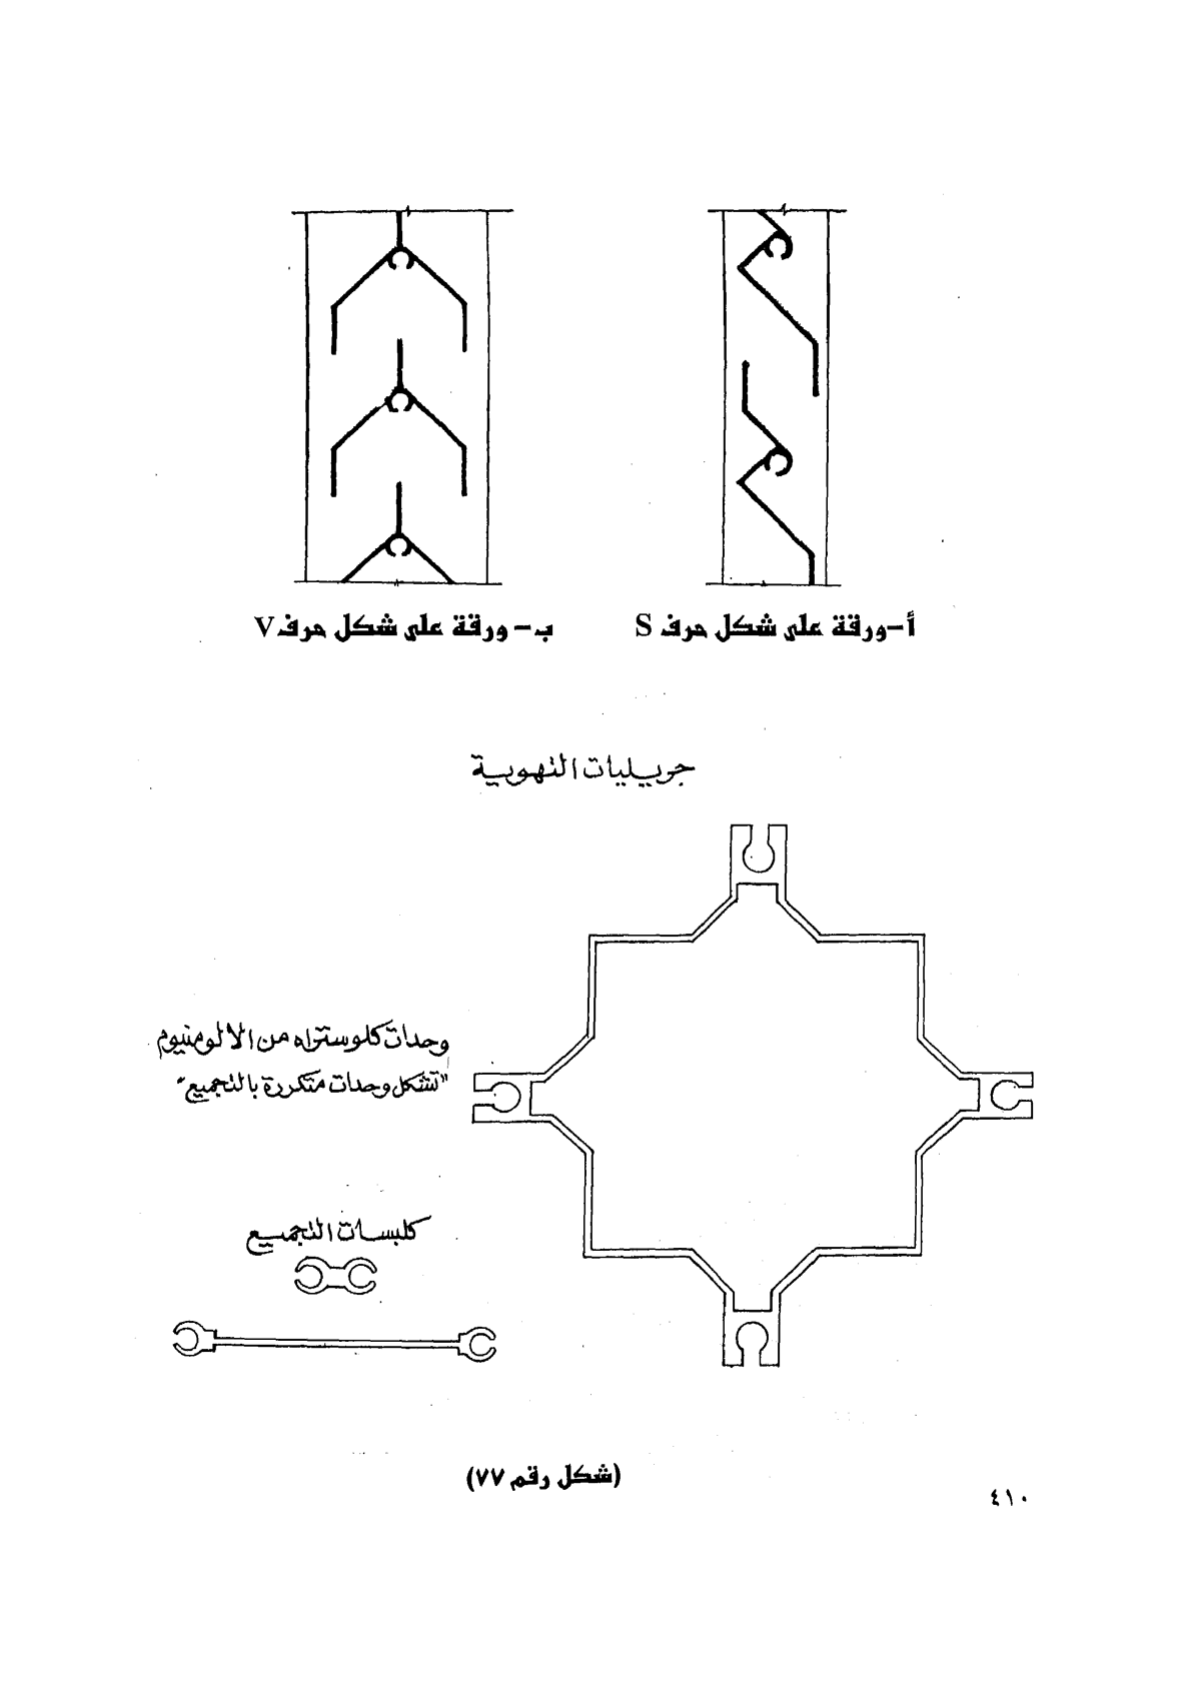 أ-ورقة على شكل حرف S
ب- ورقة على شكل حرف V
جريليات التهوية
وحدات كلوستراه من الالومنيوم
"تشكل وحدات متكررة بالتجميع"
كلبسات التجميع
(شكل رقم ٧٧)
٤١٠